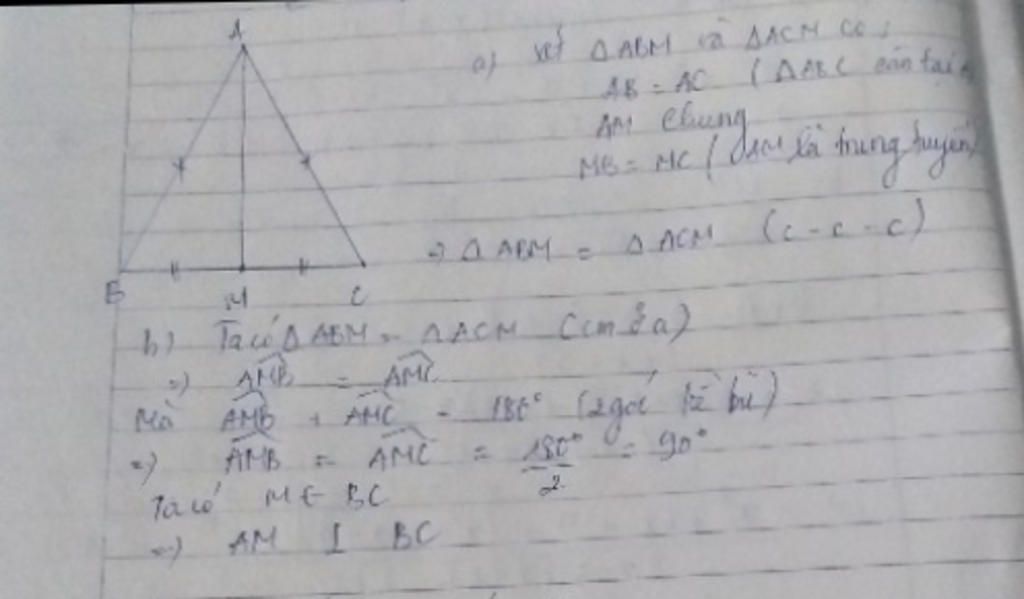 A
B
M
C
a) Xét ΔABM và ΔACM có:
AB = AC (ΔABC cân tại A
AM Chung
MB = MC ( AM là trung tuyến)
=> ΔABM = ΔACM (c - c - c)
b) Ta có ΔABM = ΔACM (cm ở a)
=> AMB = AMC
Mà AMB + AMC = 180° (2 góc kề bù)
=> AMB = AMC = 180°/2 = 90°
Ta có M ∈ BC
=> AM ⊥ BC